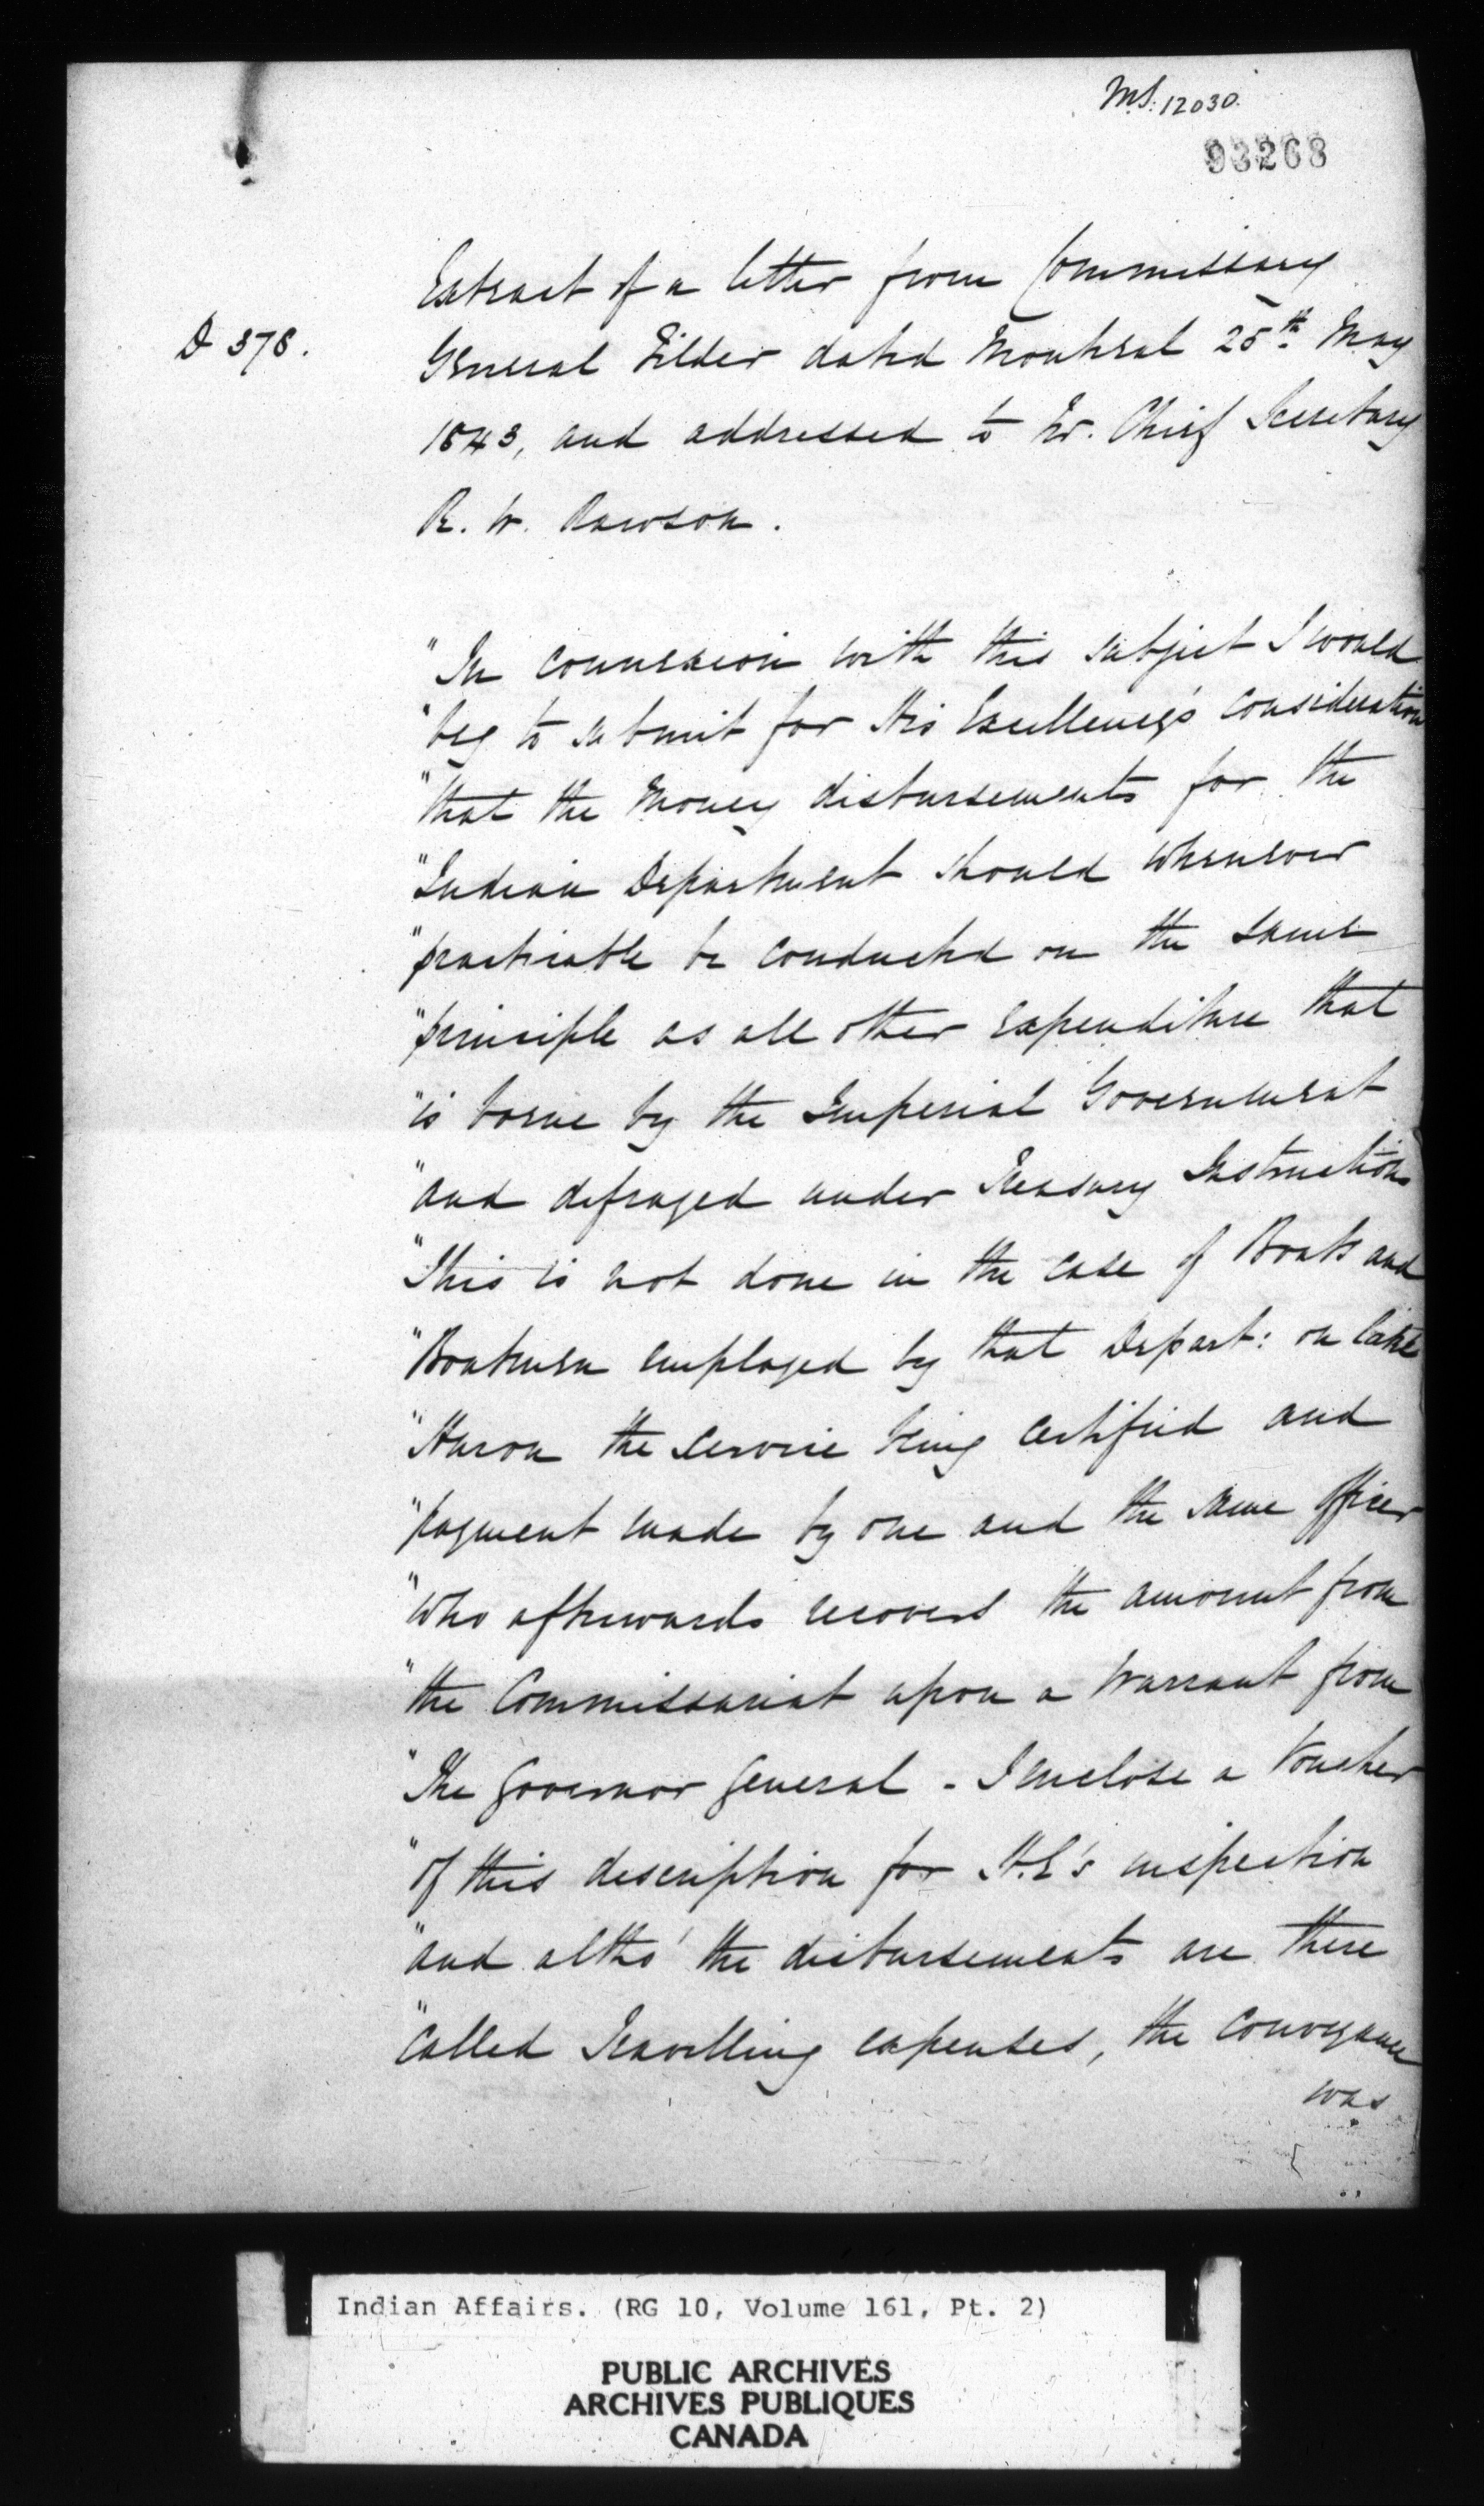 MS: 12030.
93268
D 378.
Extract of a letter from Commissary
General Filder dated Montreal 25th May
1843, and addressed to Mr. Chief Secretary
R. W. Rawson.
"In connexion with this subject I would
"beg to submit for His Excellency's consideration
"that the Money disbursements for the
"Indian Department should whenever
"practicable be conducted on the same
"principle as all other expenditure that
"is borne by the Imperial Government
"and defrayed under Treasury Instructions
"This is not done in the case of Boats and
"Boatmen employed by that Depart: on Lake
"Huron the service being certified and
"payment made by one and the same Officer
"who afterwards recovers the amount from
"the Commissariat upon a Warrant from
"The Governor General - I enclose a Voucher
"of this description for H.E's inspection
"and altho' the disbursements are there
"called Travelling expenses, the conveyance
was
Indian Affairs. (RG 10, Volume 161, Pt. 2)
PUBLIC ARCHIVES
ARCHIVES PUBLIQUES
CANADA